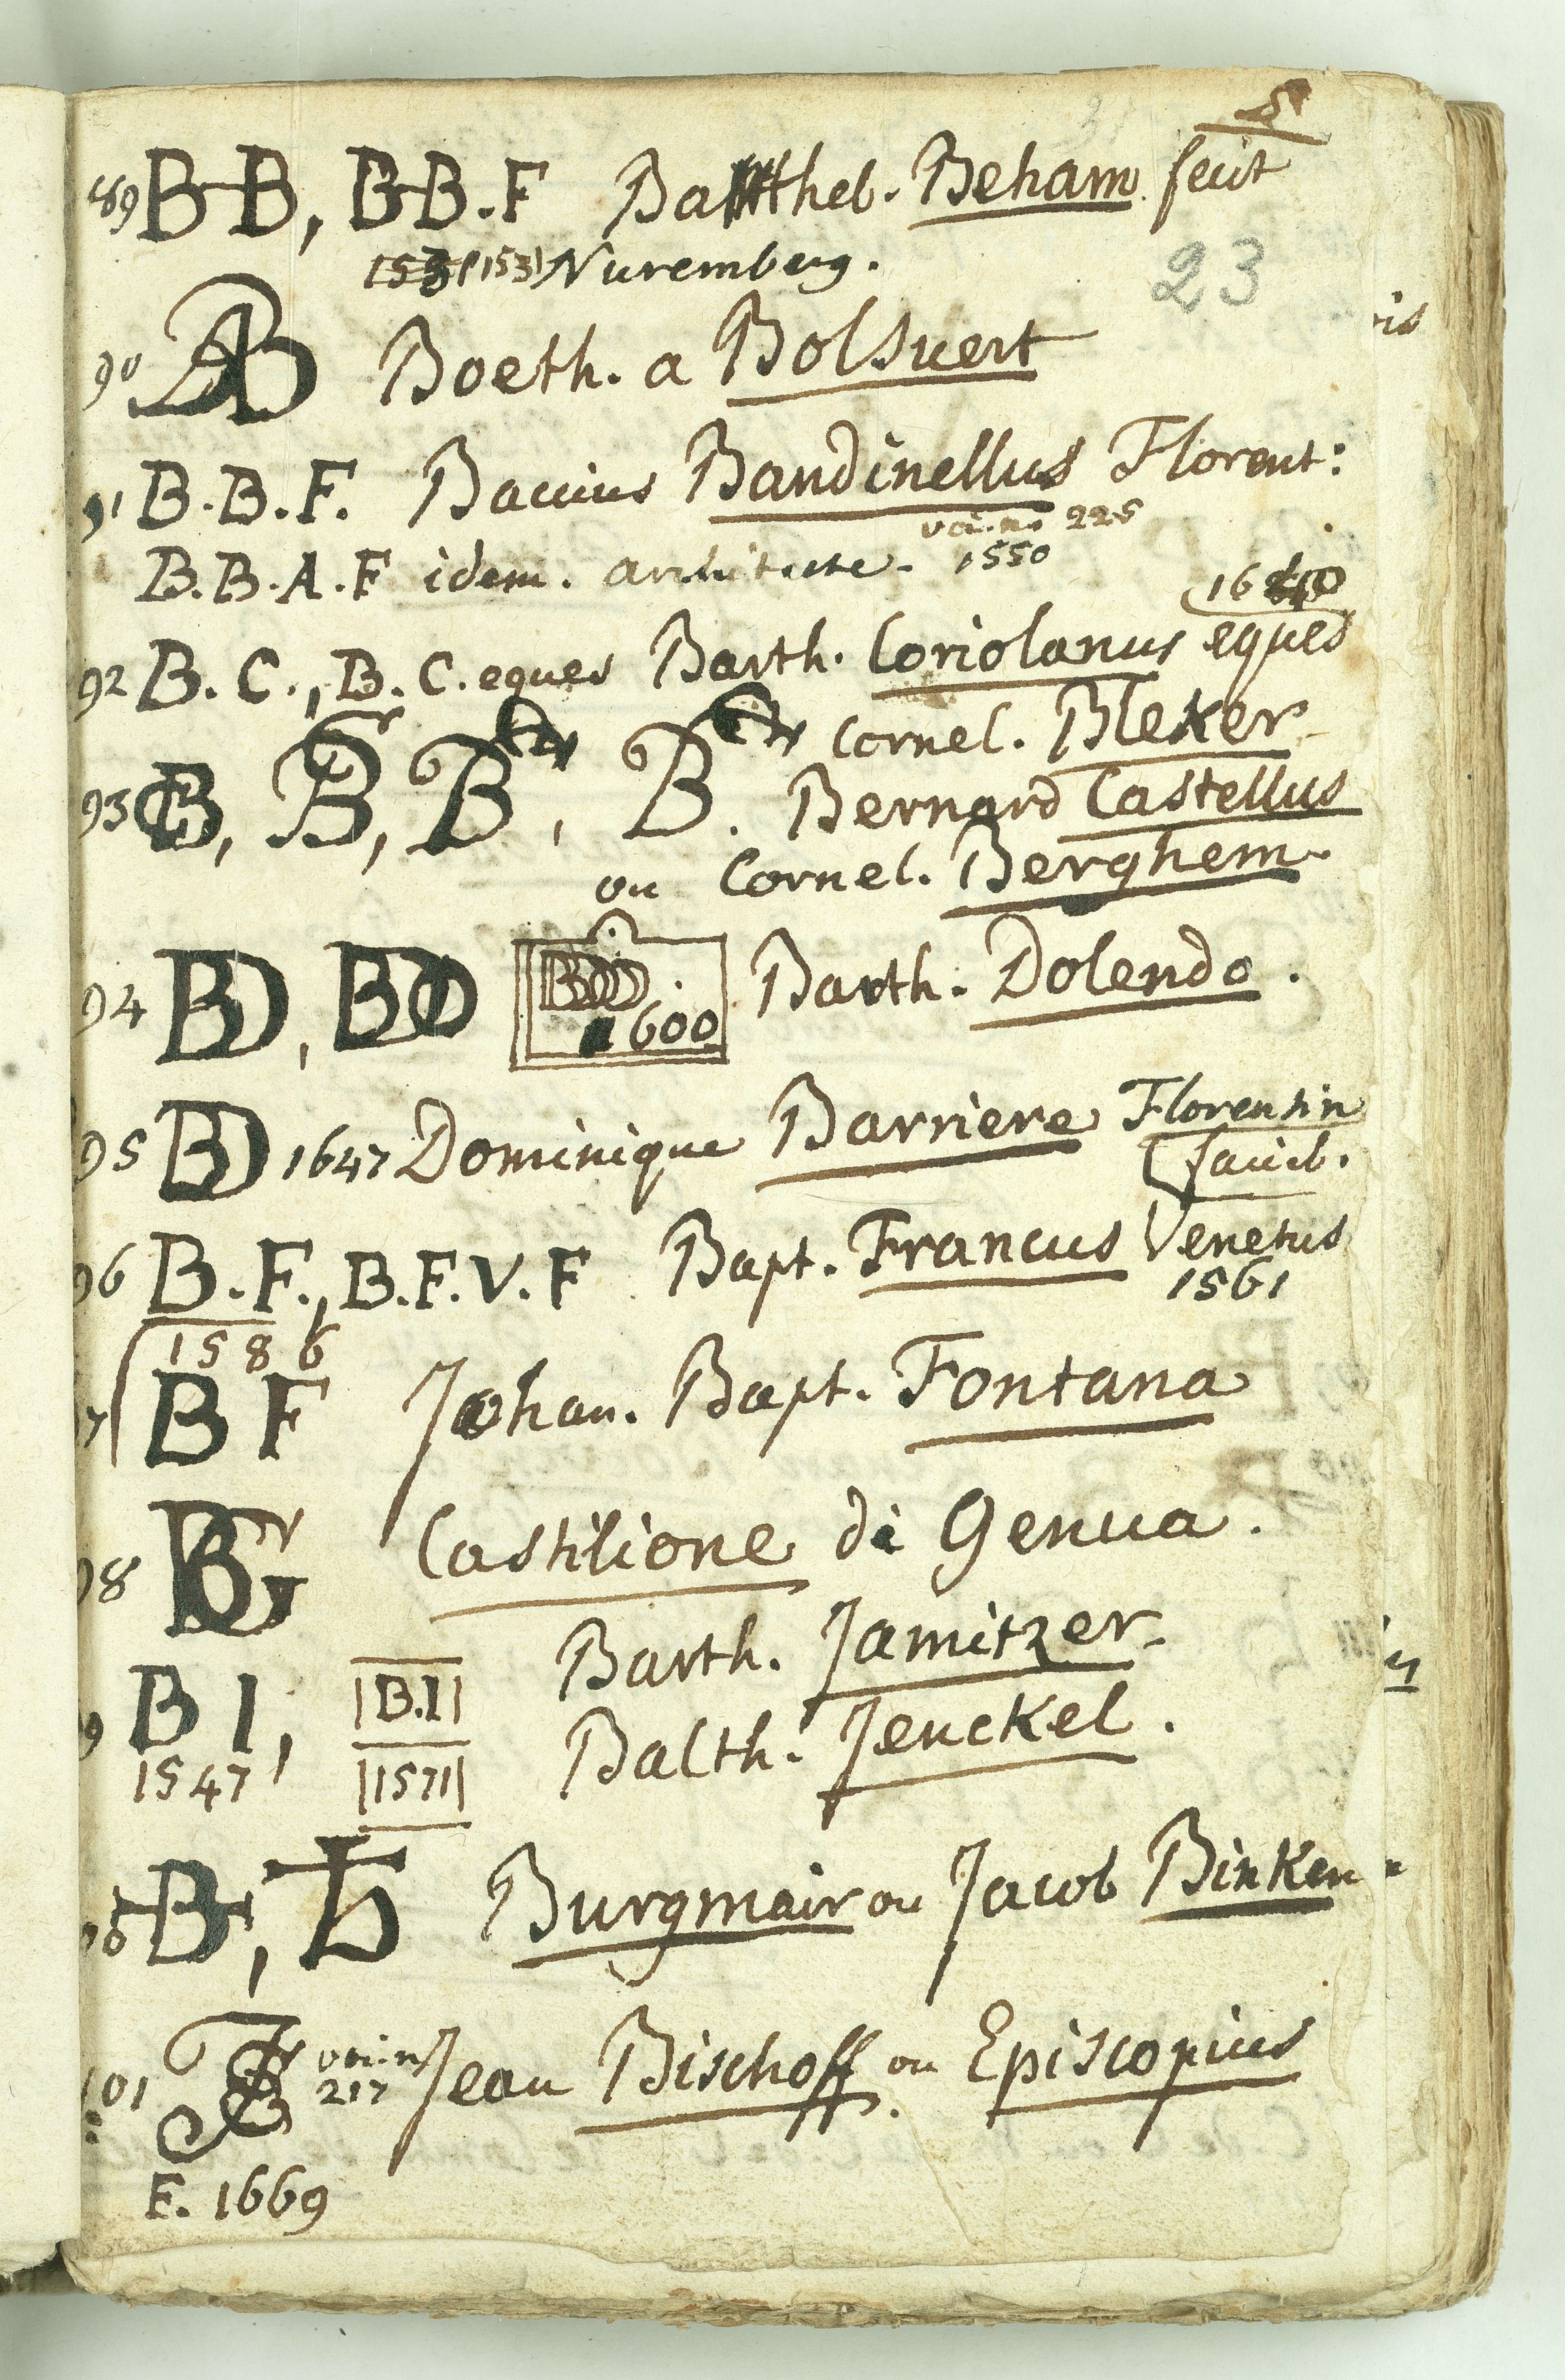 5
89 BB, BB.F Barthel. Beham fecit
1531 Nuremberg.
23
90 AB Boeth. a Bolsuert
91 B.B.F. Baccius Bandinellus Florent:
voi. n. 225
B.B.A.F idem. architecte. 1550
1640
92 B. C., B. C. eques Barth. Coriolanus eques
93 CB, B, B, B. Cornel. Bleker
Bernard Castellus
ou Cornel. Berghem.
94 BD, BDO BDO. 1600 Barth. Dolendo.
95 BD 1647 Dominique Barriere Florentin
facieb.
96 B.F., B.F.V.F Bapt. Francus Venetus
1561
1586
97 B F Johan. Bapt. Fontana
98 BG Castilione di Genua.
99 B I, B.I Barth. Jamitzer.
1547 1571 Balth. Jenckel.
B, Burgmair ou Jacob Binken
101 voi. n. 217 Jean Bischoff. ou Episcopius
F. 1669